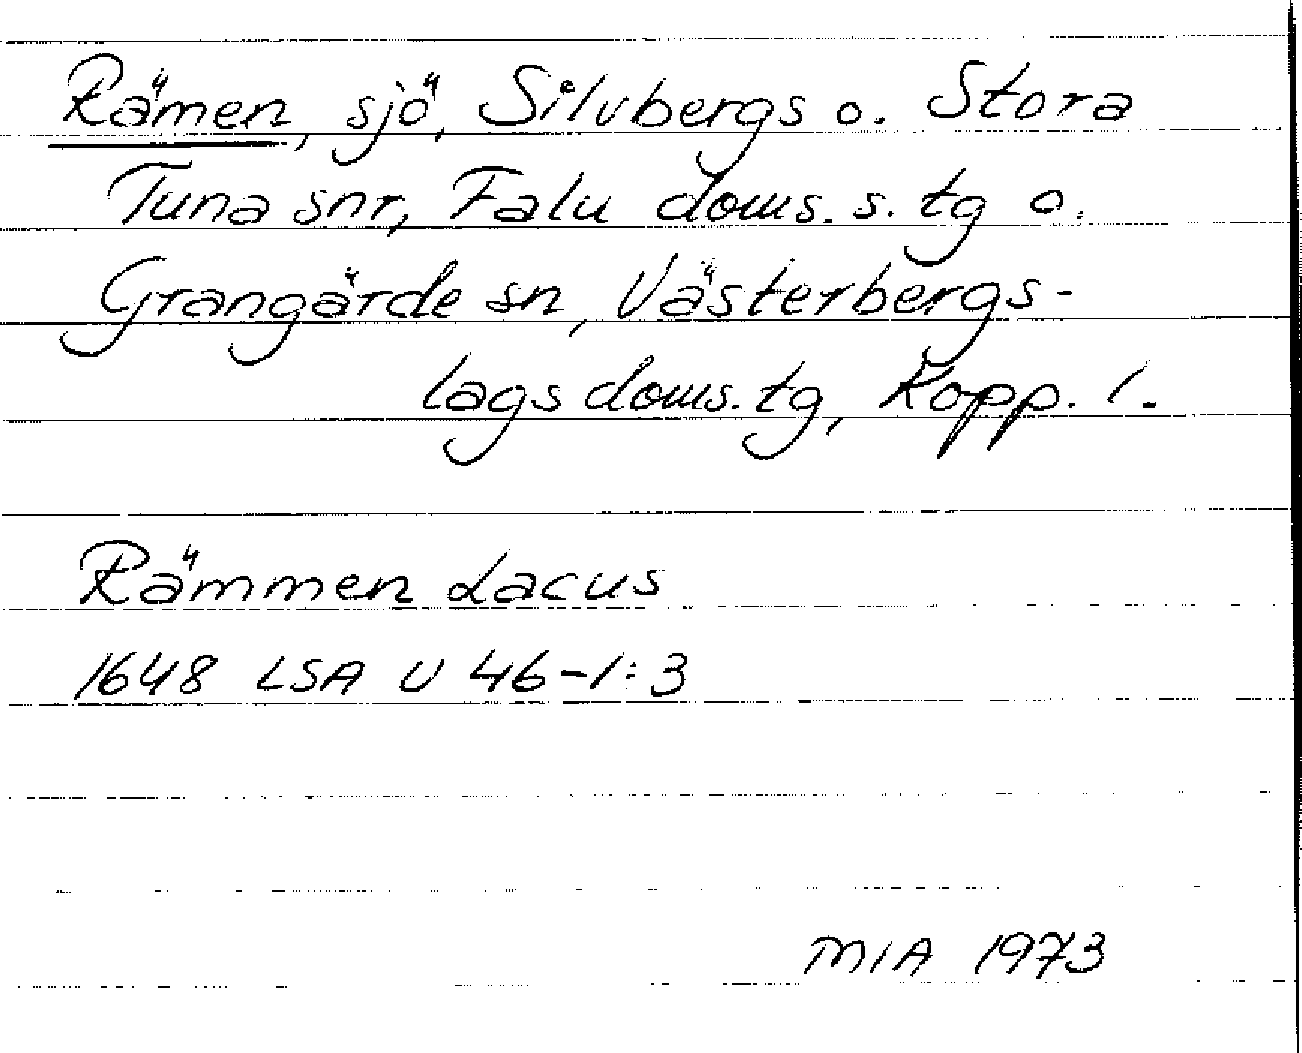 Rämen, sjö, Silvbergs o. Stora
Tuna snr, Falu doms. s. tg o.
Grangärde sn, Västerbergs-
lags doms. tg, Kopp. l.
Rämmen Lacus
1648 LSA U 46-1:3
MIA 1973